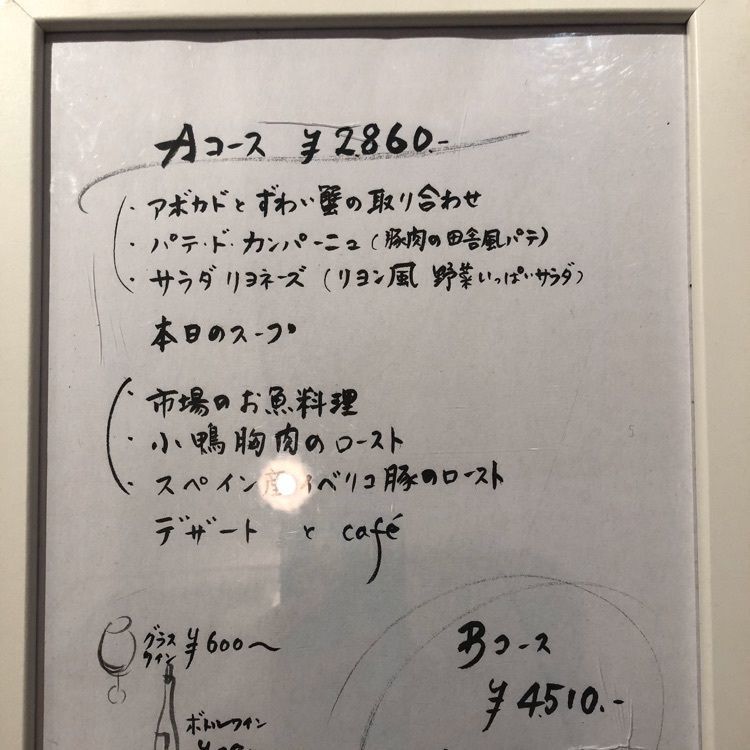 Aコース ¥2860.-
・アボカドとずわい蟹の取り合わせ
・パテ・ド・カンパーニュ(豚肉の田舎風パテ)
・サラダリヨネーズ(リヨン風 野菜いっぱいサラダ)
本日のスープ
・市場のお魚料理
・小鴨胸肉のロースト
・スペイン産イベリコ豚のロースト
デザート と café
グラス
ワイン ¥600〜
Bコース
¥4510.-
ボトルワイン